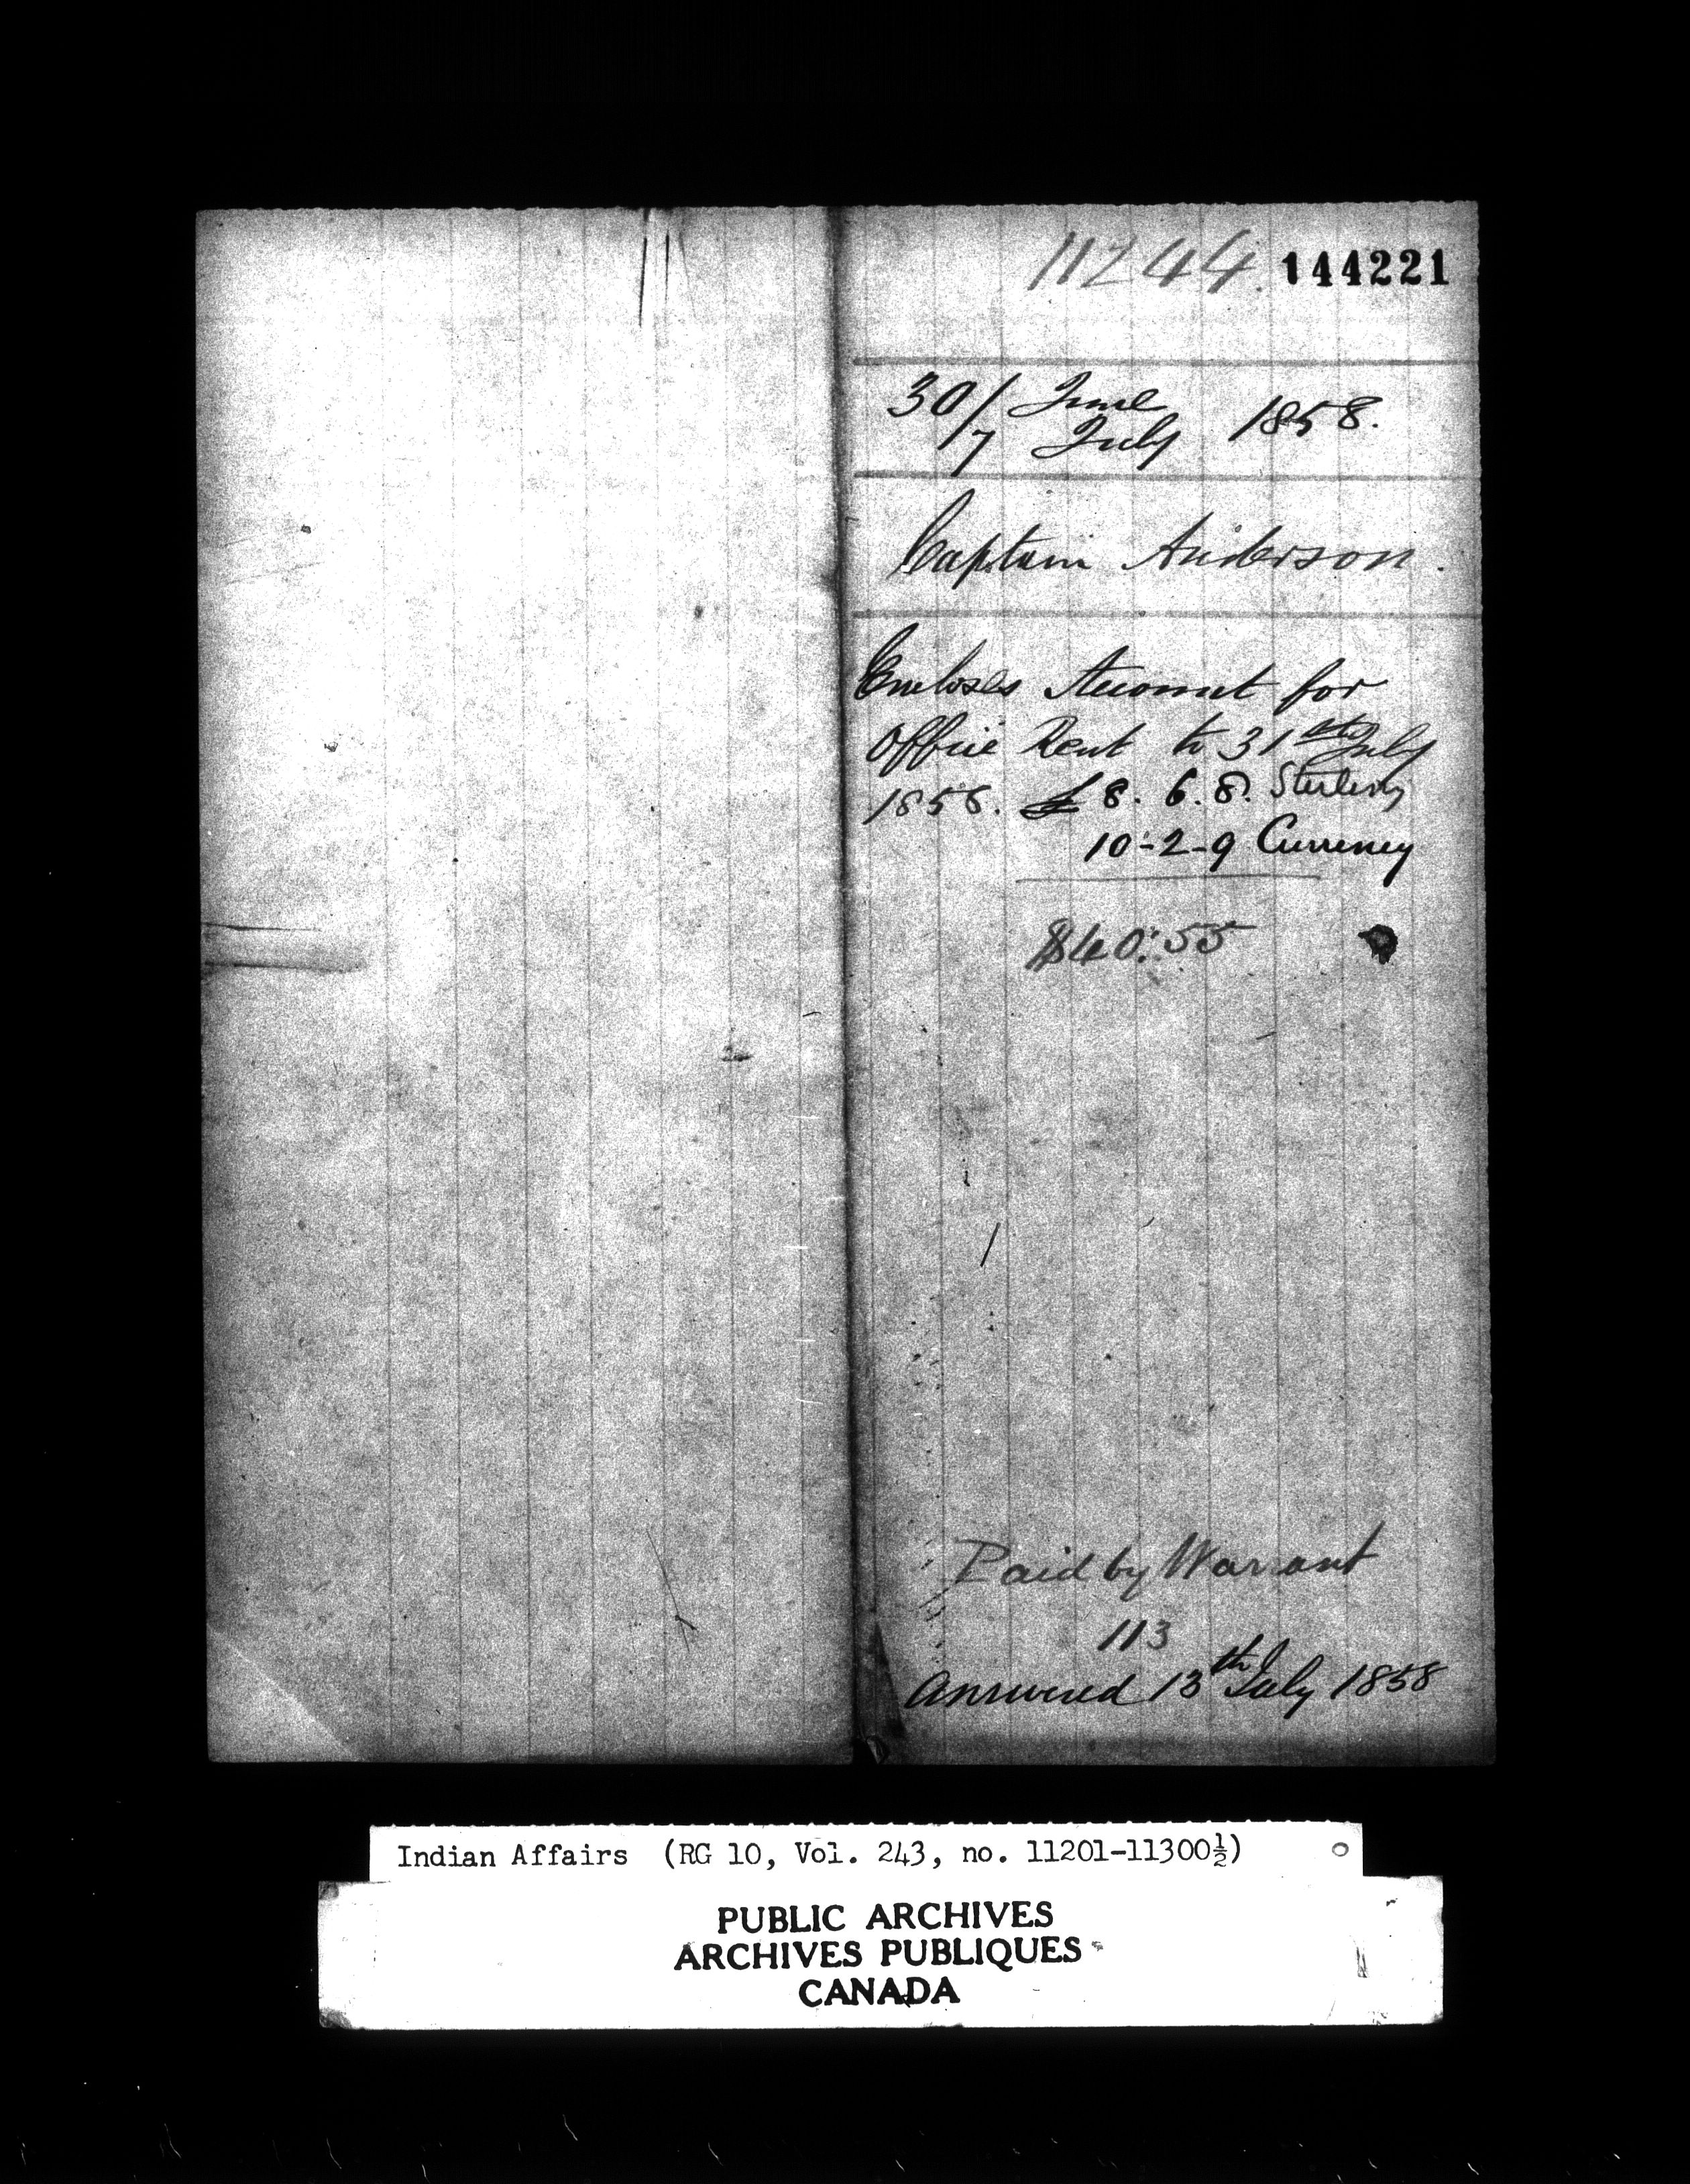 11244. 144221
30/ June
/7 July 1858.
Captain Anderson.
Encloses Account for
Office Rent to 31st July
1858. £8. 6. 8. Sterling
10-2-9 Currency
$40.55
Paid by Warrant
113
Answered 13th July 1858
Indian Affairs (RG 10, Vol. 243, no. 11201-11300½)
PUBLIC ARCHIVES
ARCHIVES PUBLIQUES
CANADA